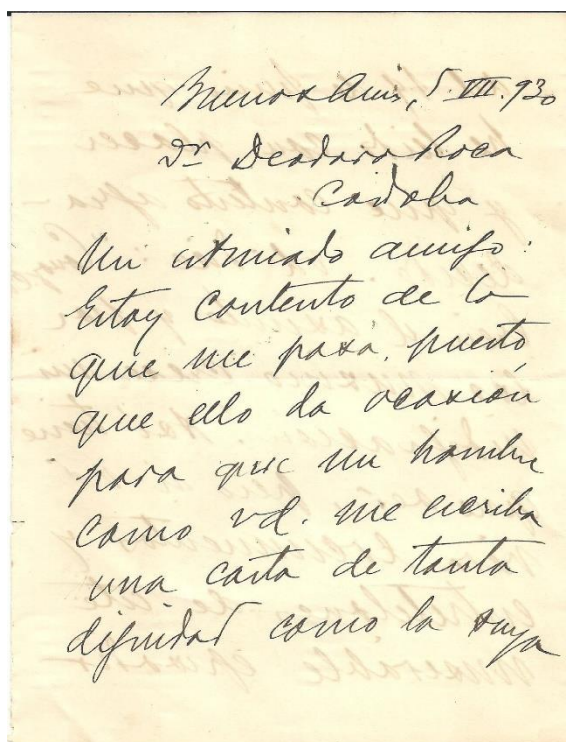 Buenos Aires, 5.VII.930
Dr Deodoro Roca
Córdoba
Mi estimado amigo:
Estoy contento de lo
que me pasa, puesto
que ello da ocasión
para que un hombre
como vd. me escriba
una carta de tanta
dignidad como la suya